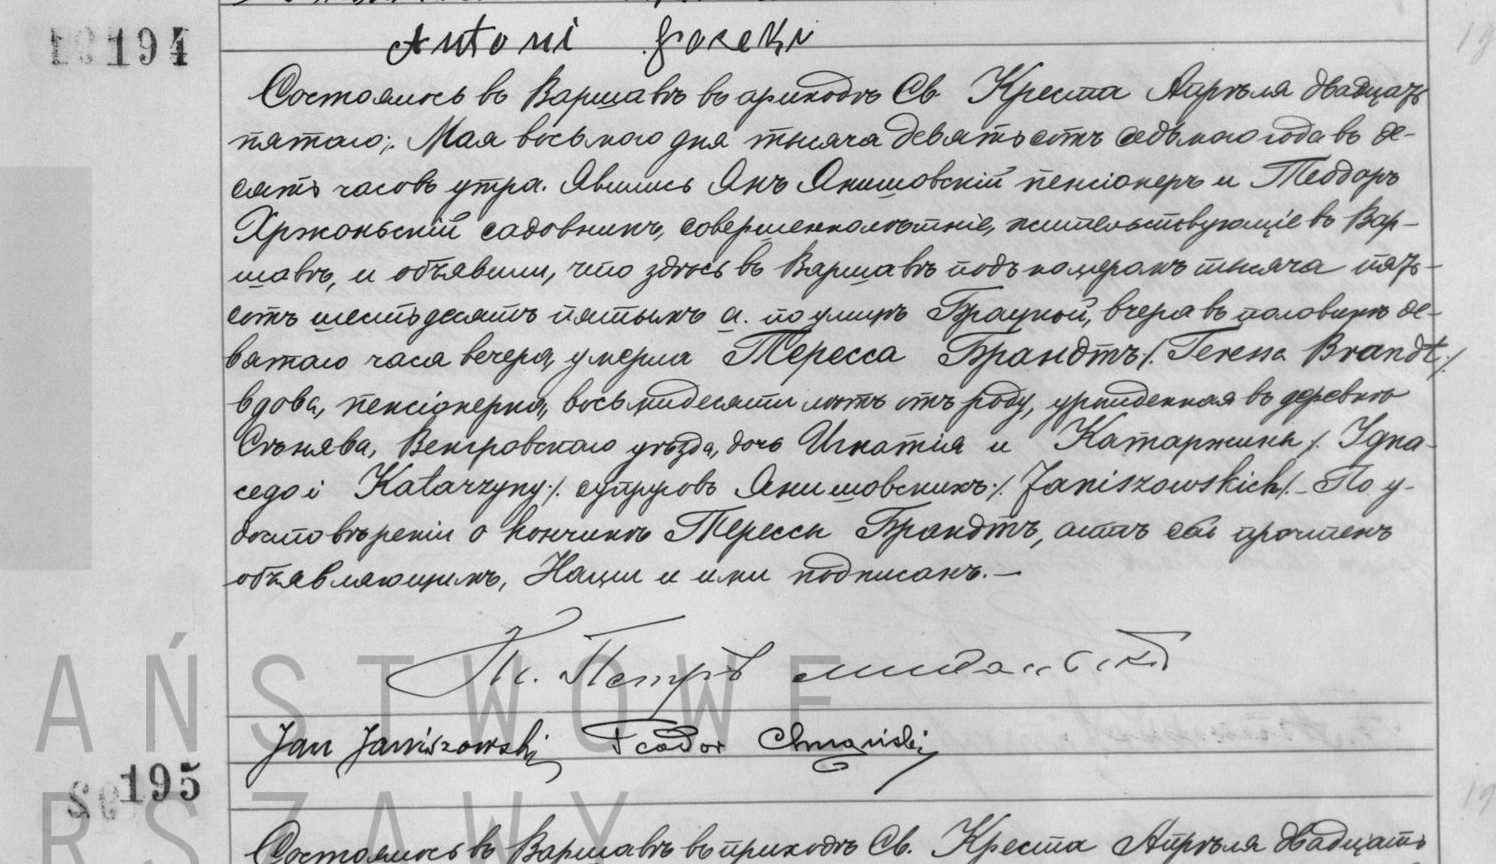 194
Antoni
Состоялось въ Варшавѣ въ приходѣ Св. Креста Апрѣля двадцать
пятаго /: Мая восьмого дня тысяча девятьсотъ седьмого года въ де-
сять часовъ утра. Явились Янъ Янишовскій пенсіонеръ и Теодоръ
Хржоньскій садовникъ, совершеннолѣтніе, жительствующіе въ Вар-
шавѣ, и объявили, что здѣсь въ Варшавѣ подъ номеромъ тысяча пять-
сотъ шестьдесятъ пятымъ а. по улицѣ Брацкой, вчера въ половинѣ де-
вятаго часа вечера, умерла Тересса Брандтъ /: Teressa Brandt :/
вдова, пенсіонерка, восьмидесяти лѣтъ отъ роду, урожденная въ деревнѣ
Сѣнява, Венгровскаго уѣзда, дочь Игнатія и Катаржины /: Igna-
cego i Katarzyny :/ супруговъ Янишовскихъ /: Janiszowskich :/ – По у-
достовѣреніи о кончинѣ Терессы Брандтъ, актъ сей прочтенъ
объявляющимъ, Нами и ими подписанъ. –
Кс. Петръ
Jan Janiszowski Teodor
195
Состоялось въ Варшавѣ въ приходѣ Св. Креста Апрѣля двадцать
AŃSTWOWE
RSZAWY